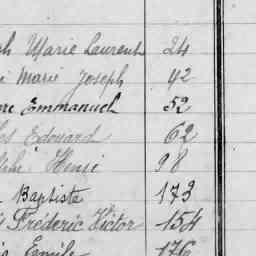 Marie Laurent 24
Marie Joseph 42
Emmanuel 52
Edouard 62
Henri 98
Baptiste 173
Frédéric Victor 154
Emile 176